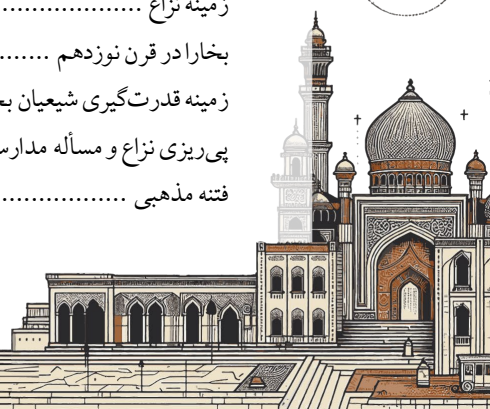 زمینه نزاع ...................
بخارا در قرن نوزدهم .......
زمینه قدرت‌گیری شیعیان
پی‌ریزی نزاع و مسأله
فتنه مذهبی .................